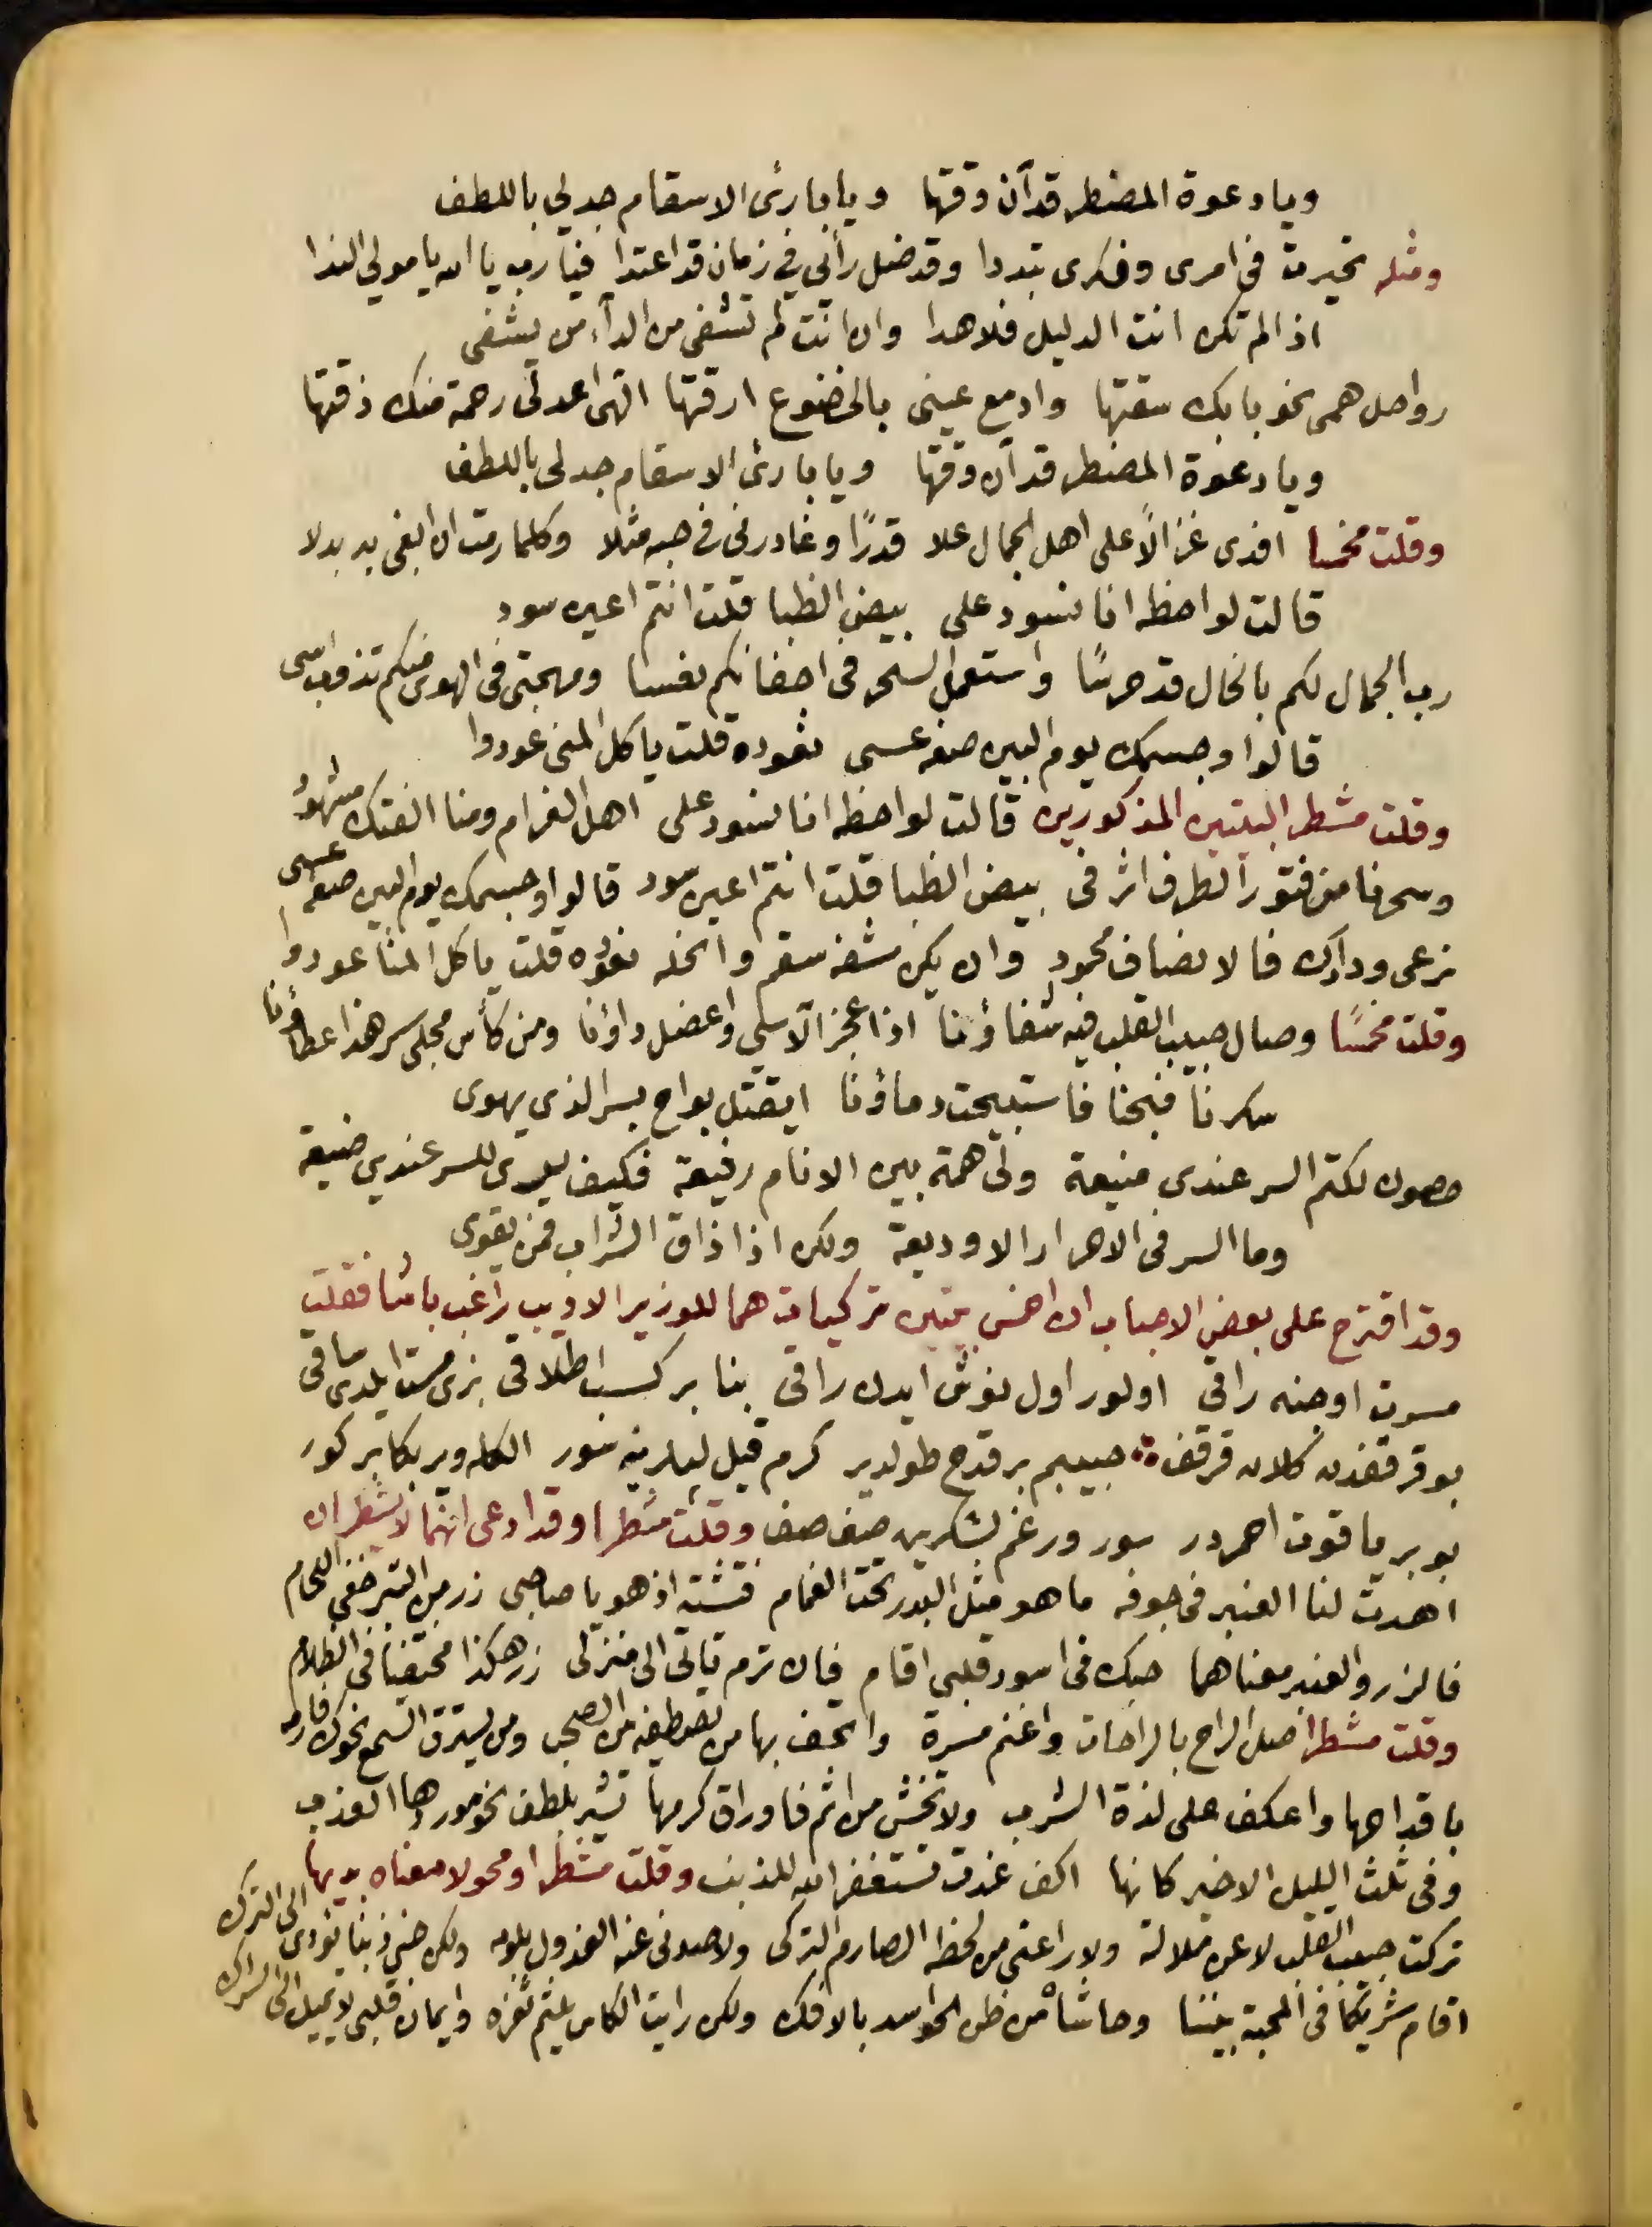 ويا دعوة المضطر قد آن وقتها ويا بارئ الاسقام جد لي باللطف
ومثله تحيرت في امرى وفكرى تبددا وقد ضل رأيي في زمان قد اعتدا فيا رب يا الله يا مولي الندا
اذا لم تكن انت الدليل فلا هدا وان انت لم تشفى من الدآء من يشفى
رواحل همى نحو بابك سقتها وادمع عينى بالخضوع ارقتها الهى اعد لى رحمة منك ذقتها
ويا دعوة المضطر قد آن وقتها ويا بارئ الاسقام جد لى باللطف
وقلت مخمسا افدى غزالًا على اهل الجمال علا قدرًا وغادرنى فى حبه مثلا وكلما رمت ان ابغى به بدلا
قالت لواحظه انا نسود على بيض الظبا قلت انتم اعين سود
رب الجمال لكم بالخال قد حرسًا واستعمل السحر فى اجفانكم نعسا ومهجتى فى الهوى منكم تذوب اسى
قالوا وجسمك يوم البين صفه عسى نعوده قلت يا كل المنى عودوا
وقلت مشطر البيتين المذكورين قالت لواحظه انا نسود على اهل الغرام ومنا الفتك مشهودُ
وسحرنا من فتور الطرف اثر فى بيض الظبا قلت انتم اعين سود قالوا وجسمك يوم البين صفه عسى
نرعى ودادك فالانصاف محمود وان يكن شفه سقم وانحله نعوده قلت يا كل المنا عودوا
وقلت مخمسًا وصال حبيب القلب فيه شفاؤنا اذا عجز الآسي واعضل داؤنا ومن كأس مجلى سر هذا عطاؤنا
سكرنا فبحنا فاستبيحت دماؤنا ايقتل بواح بسر الذي يهوى
حصون لكتم السر عندى منيعة ولى همة بين الانام رفيعة فكيف يرى للسر عندي ضيعة
وما السر فى الاحرار الا وديعة ولكن اذا ذاق الشراب فمن يقوى
وقد اقترح على بعض الاحباب ان اخمس بيتين تركيات هما للوزير الاديب راغب باشا فقلت
مسرت اوجنه راقى اولور اول نوش ايدن راقى بنا بر كسب اطلاقى بزى مست ايلدى ساقى
بو قرقفدن كلان قرقف حبيبم بر قدح طولدير كرم قيل لبلرينه سور الكله وير بكا بر كور
بو بر ياقوت احمردر سور ورغم لشكرين صف صف وقلت مشطرا وقد ادعى انهما لا يشطران
اهدت لنا العنبر فى جوفه ما هو مثل البدر تحت الغمام فتشته اذ هو يا صاحبى زر من التبر خفى اللحام
فالزر والعنبر معناهما حبك فى اسود قلبى اقام فان ترم تاتى الى منزلى زر هكذا مختفيا فى الظلام
وقلت مشطرا صل الراح بالراحات واغنم مسرة واتحف بها من تصطفيه من الصحب ومن يسترق السمع نحوك فارمه
باقداحها واعكف على لذة الشرب ولا تخش من اثم فاوراق كرمها تشير بلطف نحو موردها العذب
وفى ثلث الليل الاخير كانها اكف غدت تستغفر الله للذنب وقلت مشطرا ومحولا معناه بديها
تركت حبيب القلب لا عن ملالة ولا راعنى من لحظه الصارم التركى ولا صدنى عنه العذول بلومه ولكن جنى ذنبا يؤدى الى الترك
اقام شريكا فى المحبة بيننا وحاشاه من ظن الحواسد بالافك ولكن رايت الكاس يلثم ثغره وايمان قلبى لا يميل الى الشرك